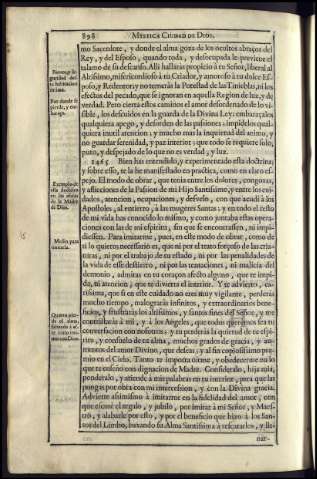 898 Mystica Ciudad de Dios.
mo Sacerdote, y donde el alma goza de los ocultos abrazos del
Rey, y del Esposo, quando toda, y desocupada le previene el
talamo de su descanso. Alli hallaràs propicio à tu Señor, liberal al
Altissimo, misericordioso à tu Criador, y amoroso à tu dulce Es-
poso, y Redentor; y no temeràs la Potestad de las Tinieblas, ni los
efectos del pecado, que se ignoran en aquella Region de luz, y de
verdad. Pero cierra estos caminos el amor desordenado de lo visi-
ble, los descuidos en la guarda de la Divina Ley: embarazalos
qualquiera apego, y desorden de las passiones: impidelos qual-
quiera inutil atencion, y mucho mas la inquietud del animo, y
no guardar serenidad, y paz interior: que todo se requiere solo,
puro, y despejado de lo que no es verdad, y luz.
1465. Bien has entendido, y experimentado esta doctrina;
y sobre esso, te la he manifestado en practica, como en claro es-
pejo. El modo de obrar, que tenia entre los dolores, congoxas,
y aflicciones de la Passion de mi Hijo Santissimo, y entre los cui-
dados, atencion, ocupaciones, y desvelo, con que acudì à los
Apostoles, al entierro, à las mugeres Santas; y en todo el resto
de mi vida has conocido lo mismo, y como juntaba estas opera-
ciones con las de mi espiritu, sin que se encontrassen, ni impi-
diessen. Para imitarme, pues, en este modo de obrar, como de
ti lo quiero, necessario es, que ni por el trato forçoso de las cria-
turas, ni por el trabajo de tu estado, ni por las penalidades de
la vida de este destierro, ni por las tentaciones, ni malicia del
demonio, admitas en tu coraçon afecto alguno, que te impi-
da, ni atencion, que te divierta el interior. Y te advierto, ca-
rissima, que si en este cuidado no eres muy vigilante, perderàs
mucho tiempo, malograràs infinitos, y extraordinarios bene-
ficios, y frustraràs los altissimos, y santos fines del Señor, y me
contristaràs à mi, y à los Angeles, que todos queremos sea tu
conversacion con nosotros; y tu perderàs la quietud de tu espi-
ritu, y consuelo de tu alma, muchos grados de gracia, y au-
mentos del amor Divino, que deseas, y al fin copiosissimo pre-
mio en el Cielo. Tanto te importa oìrme, y obedecerme en lo
que te enseño con dignacion de Madre. Consideralo, hija mia,
ponderalo, y atiende à mis palabras en tu interior, para que las
pongas por obra con mi intercession, y con la Divina gracia.
Advierte assimismo à imitarme en la fidelidad del amor, con
que escusè el regalo, y jubilo, por imitar à mi Señor, y Maes-
tro, y alabarle por esto, y por el beneficio que hizo à los San-
tos del Limbo, baxando su Alma Santissima à rescatarlos, y lle-
nar-